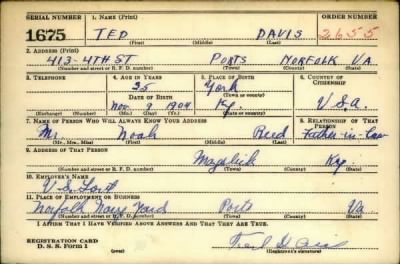 SERIAL NUMBER 1. NAME (Print) ORDER NUMBER
1675 TED DAVIS 2655
(First) (Middle) (Last)
2. ADDRESS (Print)
413-4TH ST PORTS NORFOLK VA.
(Number and street or R. F. D. number) (Town) (County) (State)
3. TELEPHONE 4. AGE IN YEARS 5. PLACE OF BIRTH 6. COUNTRY OF CITIZENSHIP
35 York
DATE OF BIRTH (Town or county)
Nov. 9 1904 Ky. U.S.a.
(Exchange) (Number) (Mo.) (Day) (Yr.) (State or country)
7. NAME OF PERSON WHO WILL ALWAYS KNOW YOUR ADDRESS 8. RELATIONSHIP OF THAT PERSON
Mr. Noah Reed Father-in-Law
(Mr., Mrs., Miss) (First) (Middle) (Last)
9. ADDRESS OF THAT PERSON
Mayslick Ky.
(Number and street or R. F. D. number) (Town) (County) (State)
10. EMPLOYER'S NAME
U.S. Govt
11. PLACE OF EMPLOYMENT OR BUSINESS
Norfolk Navy Yard Ports Va
(Number and street or R. F. D. number) (Town) (County) (State)
I AFFIRM THAT I HAVE VERIFIED ABOVE ANSWERS AND THAT THEY ARE TRUE.
REGISTRATION CARD
D. S. S. Form 1 (over) (Registrant's signature)